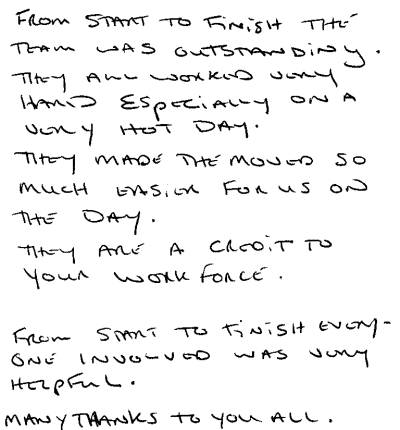 FROM START TO FINISH THE
TEAM WAS OUTSTANDING.
THEY ALL WORKED VERY
HARD ESPECIALLY ON A
VERY HOT DAY.
THEY MADE THE MOVED SO
MUCH EASIER FOR US ON
THE DAY.
THEY ARE A CREDIT TO
YOUR WORK FORCE.
FROM START TO FINISH EVERY-
ONE INVOLVED WAS VERY
HELPFUL.
MANY THANKS TO YOU ALL.